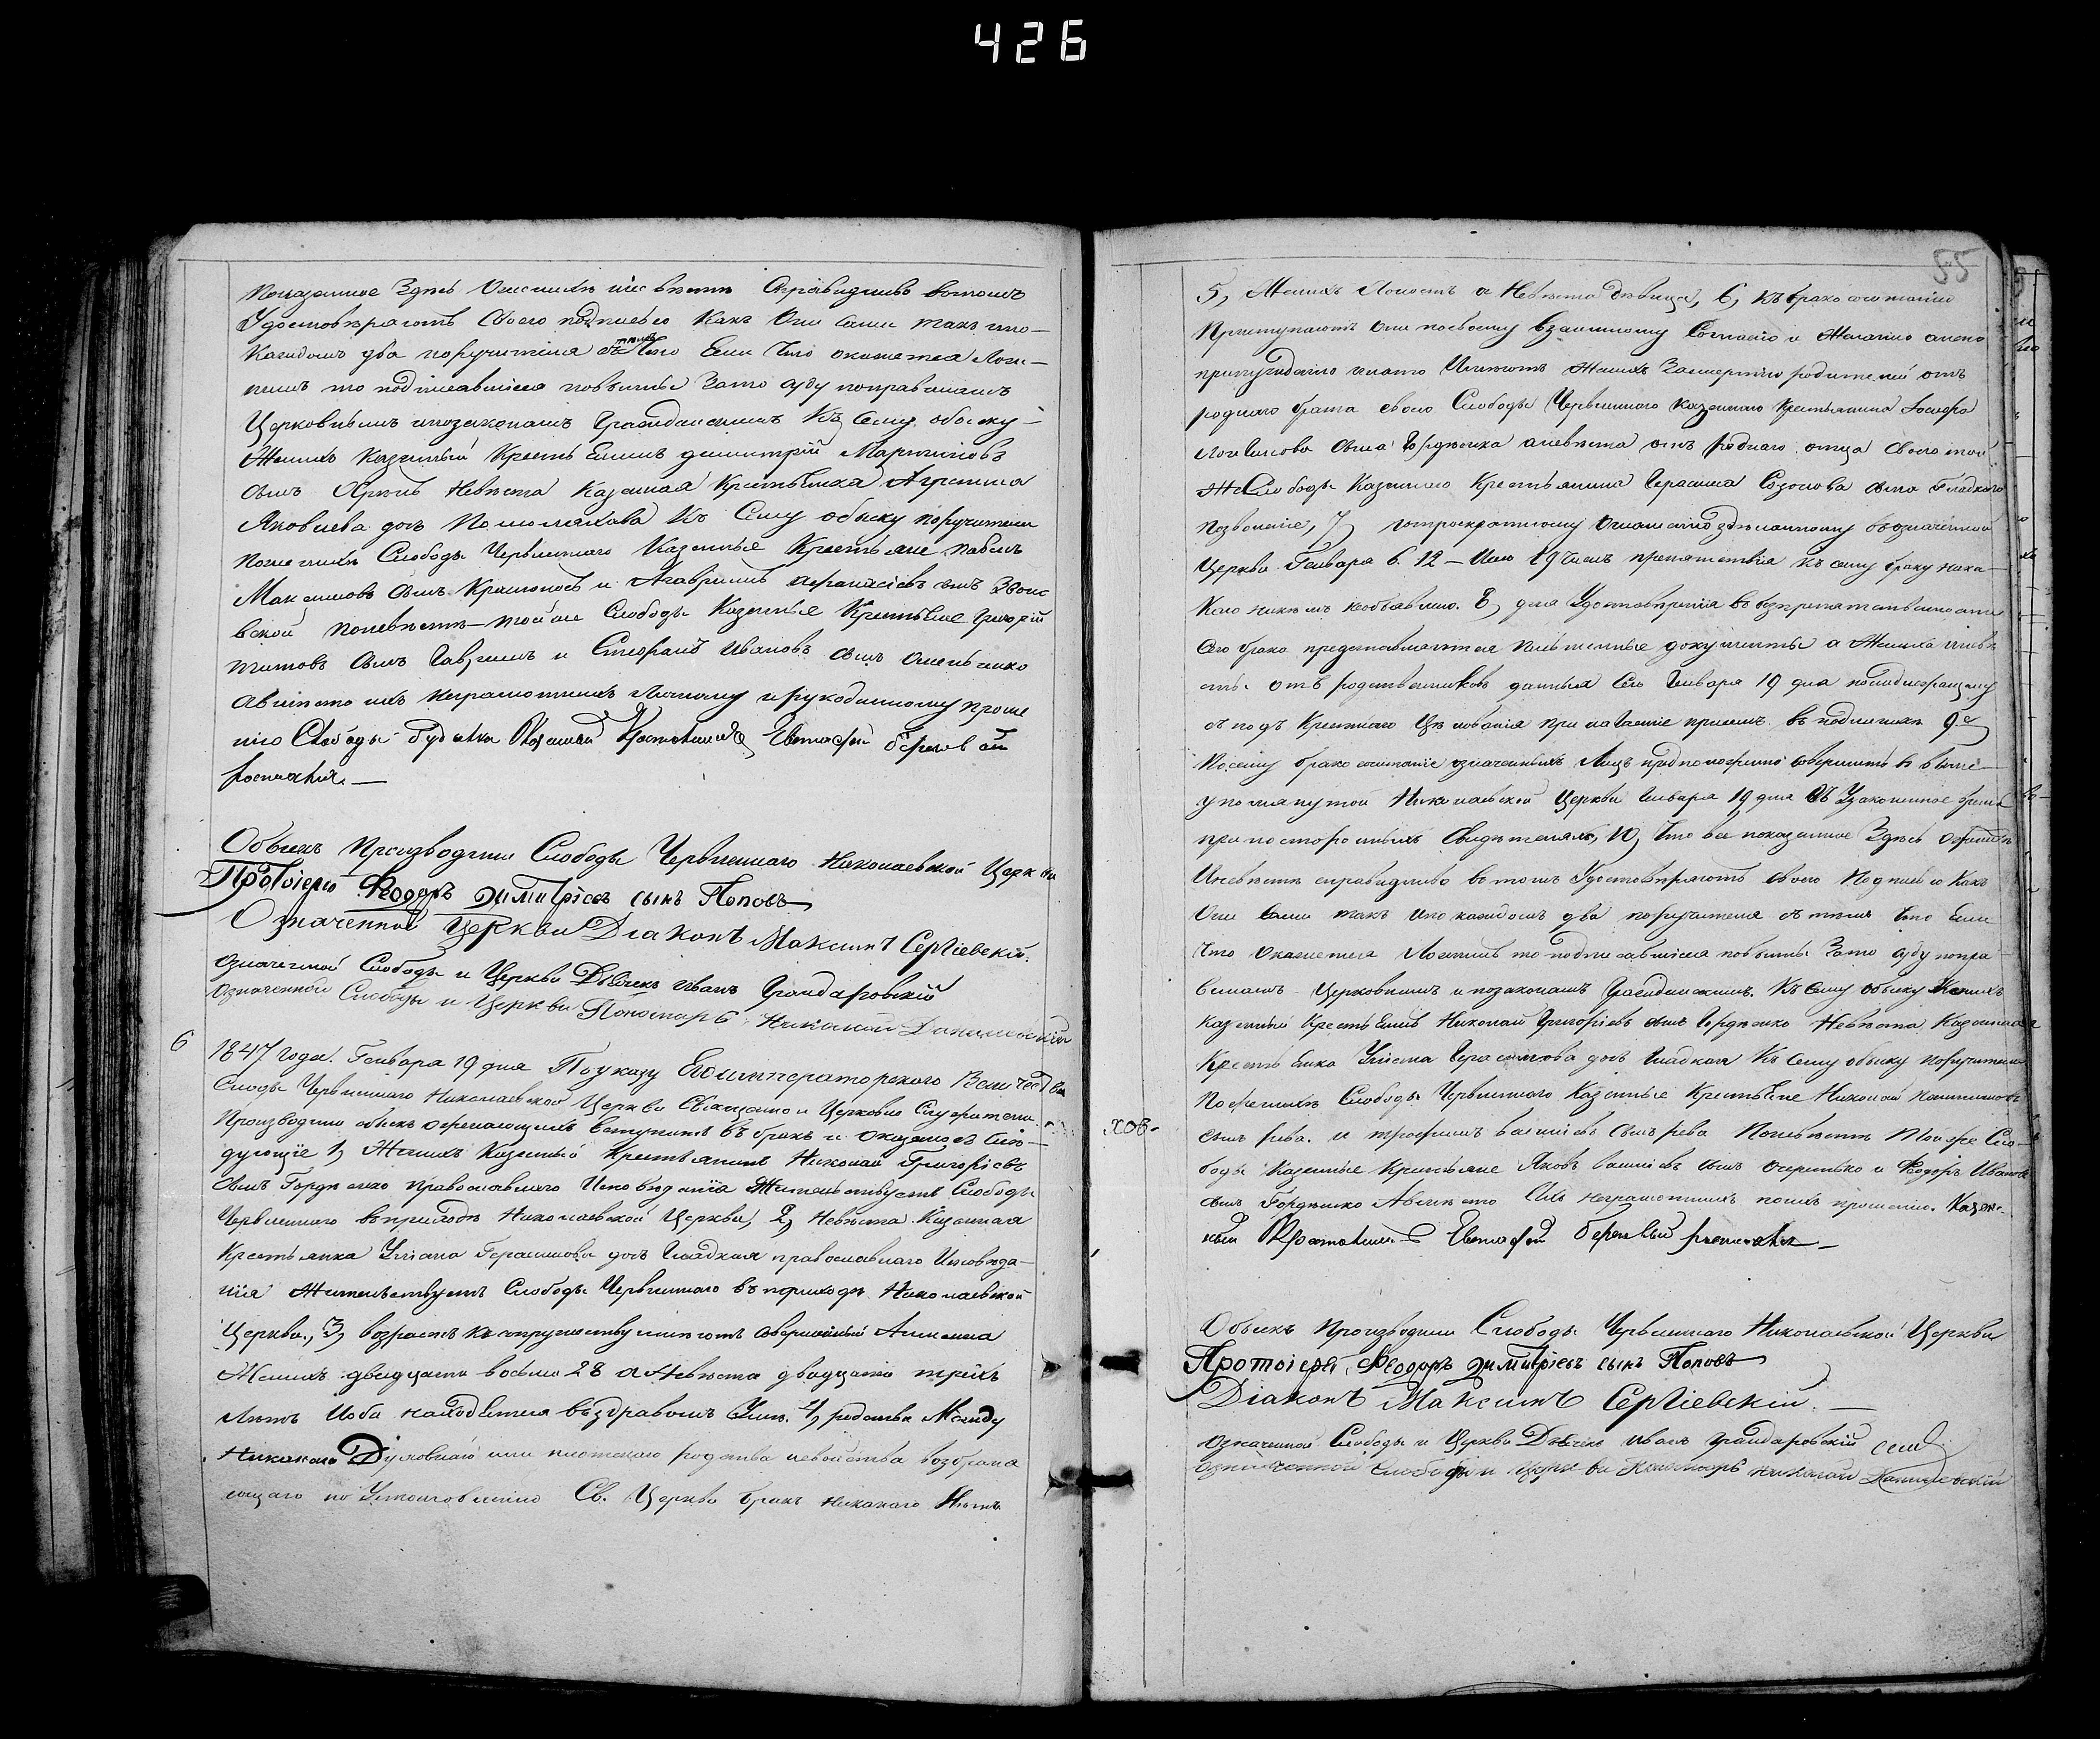 426
показанное Здесь Оженихѣ иневѣстѣ Справидливо вотомъ
Удостовѣряютъ Своею подписью Какъ Они Сами такъ ипо-
Каждомъ два поручителя стѣмъ Что Если Что окажется Лож-
нымъ то подписавшіеся повынны Зато суду поправиламъ
Церковнымъ ипозаконамъ Гражданскимъ Къ Сему обыску
Женихъ Казенный КрестьЕнинъ димитрій Мартиновъ
сынъ Невѣста Казенная КрестьЕнка Агрипина
Яковлева дочь Къ Сему обыску поручители
поженихѣ Слободы Червленнаго Казенные Крестьяне павелъ
Максимовъ сынъ и сынъ
поневѣстѣ тойже Слободы Казенные КрестьЕне Григорій
Титовъ сынъ Гаврышъ и Стефанъ Ивановъ сынъ
Авмѣсто ихъ неграмотныхъ Личному ирукоданному проше
нію Слободы Евстафій
росписался.—
Обыскъ Производили Слободы Червленнаго Николаевской Церкви
Протоіерей Ѳеодоръ Димитріевъ сынъ Поповъ
Означенной Церкви Діаконъ Максимъ Сергіевскій.
Означенной Слободы и Церкви Дьячекъ Иванъ
Означенной Слободы и Церкви Пономарь Николай Данилевскій
6
1847 Года. Генваря 19 дня Поуказу Егоимператорского Величества
Слоды Червленнаго Николаевской Церкви Священно и Церковно Служители
Производили обыскъ ожелающихъ вступить въ бракъ и оказалось Слѣ-
дующіе 1, Женихъ Казенный Крестьянинъ Николай Григоріевъ
сынъ Гордѣенко православнаго Исповѣданія Жительствуетъ Слободы
Червленнаго въприходѣ Николаевской Церкви, 2, Невѣста Казенная
Крестьянка Уліяна Герасимова дочь Гладкая православнаго Исповѣда-
нія Жительствуетъ Слободы Червленнаго въприходѣ Николаевской
Церкви, 3, возрастъ къ супружеству имѣютъ совершенный Аименна
Женихъ двадцати восьми 28 аНевѣста двадцати трехъ
Лѣтъ Иоба находЕтся въздравомъ Умѣ. 4, родства Между
Никакаго Духовнаго или плотскаго родства исвойства возбраня
ющаго по Установленію Св. Церкви бракъ никакаго Нѣтъ
55
5, Женихъ Холостъ а Невѣста дѣвица, 6, Къ бракосочетанію
Приступаютъ они посвоему взаимному Согласію и Желанію анепо
принужденію начто Имѣютъ Женихъ Засмертію родителей отъ
роднаго брата своего Слободы Червленнаго казеннаго Крестьянина Іосифа
сына Гордѣенка аневѣста отъ роднаго отца Своего той
ЖеСлободы Казеннаго Крестьянина Герасима Созонова сына Гладкого
Позволеніе, 7, потроекратному Оглашенію здѣланному въозначенной
Церкви Генваря 6. 12 – Ииго 19 Числъ препятствія къ сему браку ника-
Кого никѣмъ необъявлено. 8, для Удостовѣренія въбезпрепятственности
Сего брака представляются письменные документы а Жениха иневѣ
сты отъ родственниковъ данныя Сего Генваря 19 дня
съ подъ Крестнаго Цѣлованія въ 9.е
посему бракосочетаніе означенныхъ Лицъ предположенно совершить въ выше-
упомянутой Николаевской Церкви Генваря 19 дня Въ Узаконенное время
припостороннихъ Свидѣтеляхъ, 10, Что все показанное Здѣсь ожениха
Иневѣстѣ справидливо вотомъ Удостовѣряютъ своею Подписью Какъ
Они Сами такъ ипо каждомъ два поручителя стѣмъ Что Если
Что окажется Ложнымъ то подписавшіеся повынны Зато суду попра-
виламъ Церковнымъ ипозаконамъ Гражданскимъ. Къ Сему обыску Женихъ
Казенный КрестьЕнинъ Николай Григоріевъ сынъ Гордѣенко Невѣста Казенная
КрестьЕнка Уліяна Герасимова дочь Гладкая Къ Сему обыску поручители
Поженихѣ Слободы Червленнаго Казенные КрестьЕне Николай
сынъ рева. и трофимъ василіевъ сынъ рева Поневѣстѣ Тойже Сло-
боды Казенные Крестьяне Яковъ василіевъ сынъ и Ѳеодоръ Ивановъ
сынъ Гордѣенко Авмѣсто Ихъ неграмотныхъ поихъ прошенію. Казен-
ный Евстафій росписался—
Обыскъ Производили Слободы Червленнаго Николаевской Церкви
Протоіерей Ѳеодоръ Димитріевъ сынъ Поповъ
Діаконъ Максимъ Сергіевскій.—
Означенной Слободы и Церкви Дьячекъ Иванъ
Означенной Слободы и Церкви Пономарь Николай Данилевскій